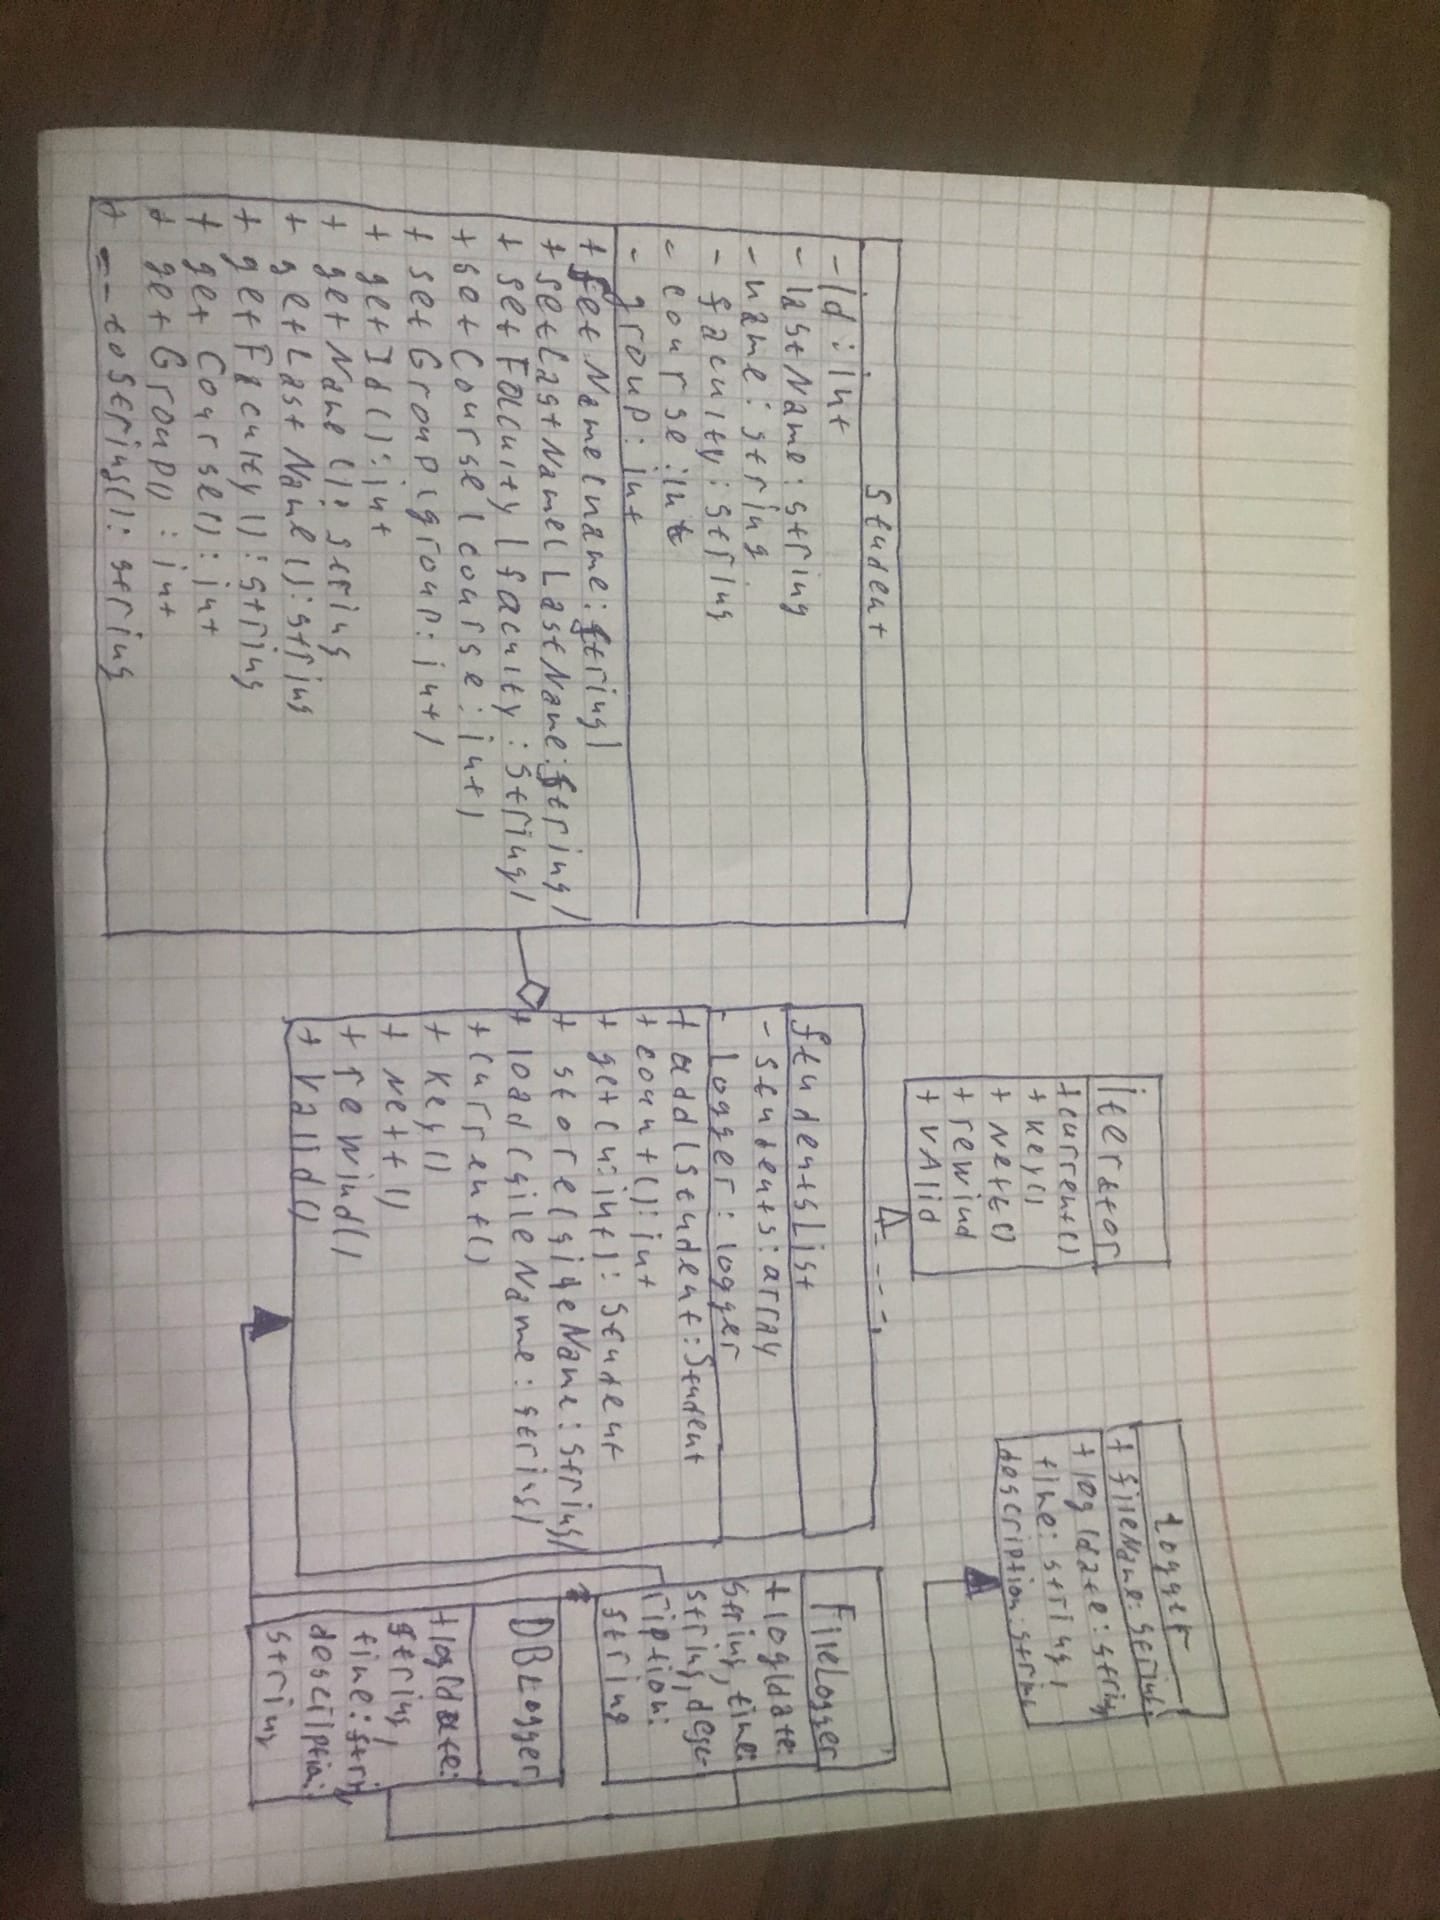 Student
- id : int
- lastName : string
- name : string
- faculty : string
- course : int
- group : int
+ setName(name: string)
+ setLastName(LastName: string)
+ setFaculty(faculty : string)
+ setCourse(course : int)
+ setGroup(group: int)
+ getId(): int
+ getName(): string
+ getLastName(): string
+ getFaculty(): string
+ getCourse(): int
+ getGroup() : int
+ __toString(): string
Iterator
+ current()
+ key()
+ next()
+ rewind
+ vAlid
StudentsList
- students : array
- logger : logger
+ add(student: Student
+ count(): int
+ get(n: int): Student
+ store(fileName: string)
+ load(fileName: string)
+ current()
+ key()
+ next()
+ rewind()
+ valid()
Logger
+ fileName: string
+ log(date: string
time: string,
description: string
FileLogger
+ log(date:
string, time:
string, desc-
ription:
string
DBLogger
+ log(date:
string,
time: strin,
desciption:
string